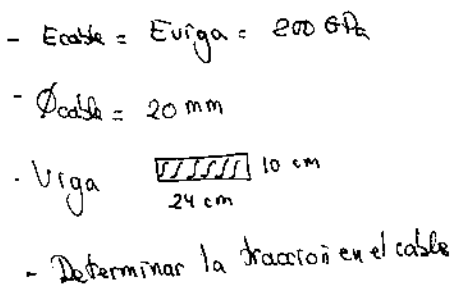 - Ecable = Eviga = 200 GPa
- Øcable = 20 mm
. Viga 10 cm
24 cm
- Determinar la tracción en el cable